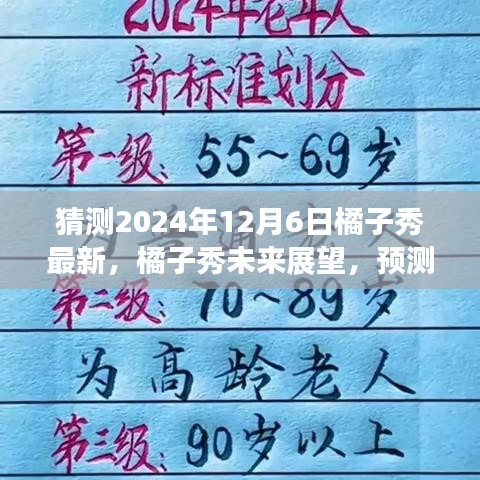 2024年老年人
新标准划分
第一级：55~69岁
猜测2024年12月6日橘子秀
最新，橘子秀未来展望，预测
第二级：70~89岁
为高龄老人
第三级：90岁以上